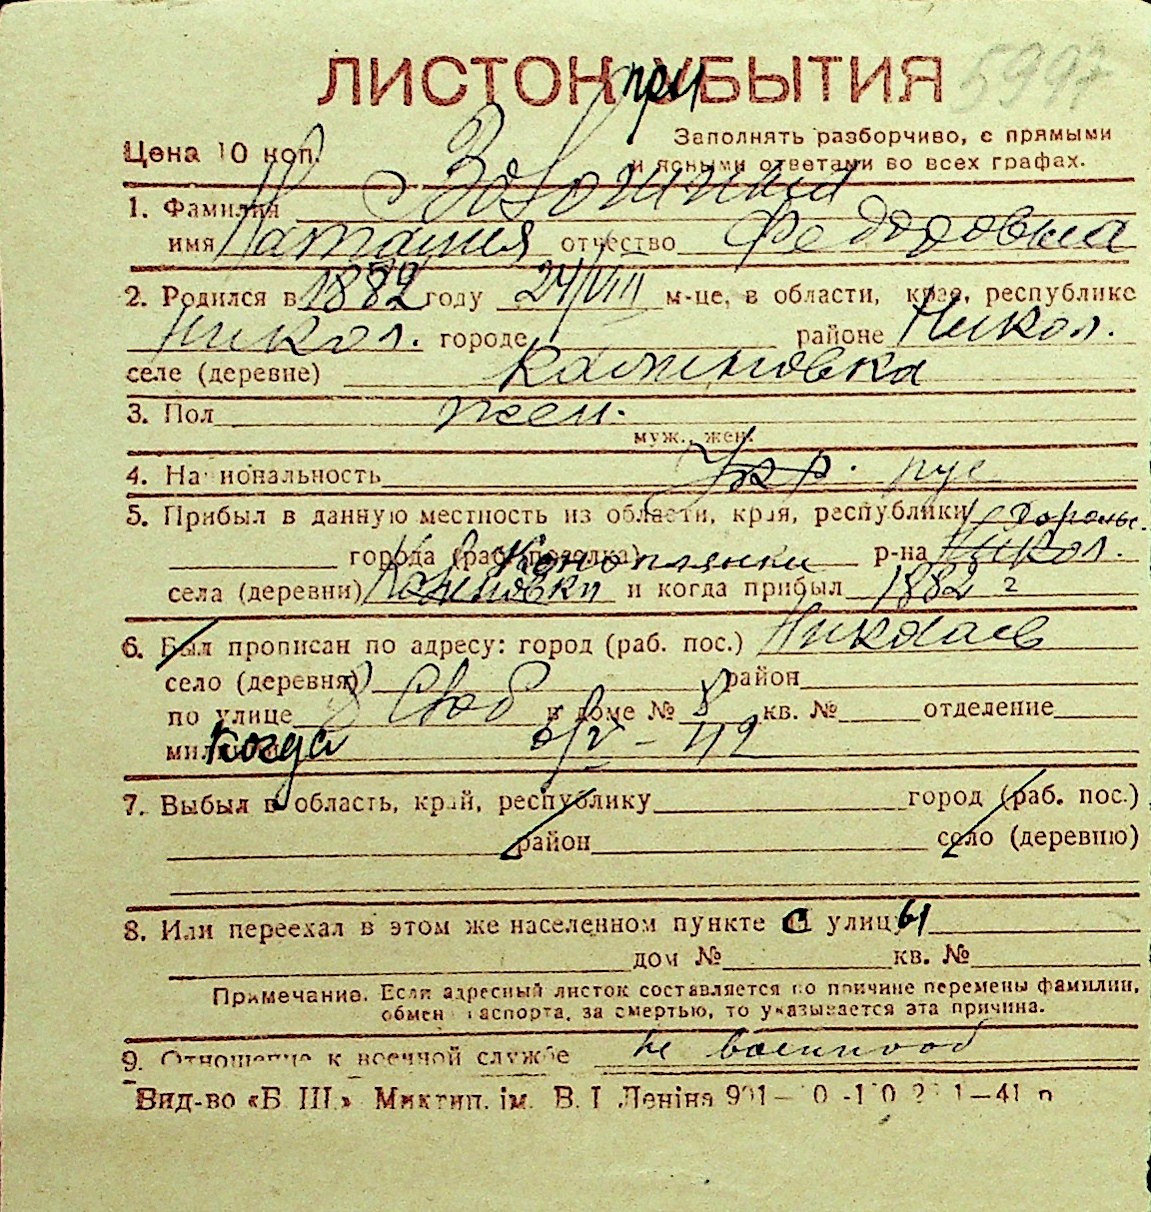 5997
ЛИСТОК при УБЫТИЯ
Цена 10 коп.
Заполнять разборчиво, с прямыми
и ясными ответами во всех графах.
1. Фамилия
имя Наталия отчество Федоровна
2. Родился в 1882 году 24/VIII м-це, в области, крае, республике
Никол. городе районе Никол.
селе (деревне) Калиновка
3. Пол жен.
муж., жен.
4. Национальность Укр. рус
5. Прибыл в данную местность из области, края, республики
города (раб. поселка) Коноплянки р-на Никол.
села (деревни) Калиновки и когда прибыл 1882 г
6. Был прописан по адресу: город (раб. пос.) Николаев
село (деревня) район
по улице 8 Слоб в доме № 8 кв. № отделение
милиции когда 6/V – 42
7. Выбыл в область, край, республику город (раб. пос.)
район село (деревню)
8. Или переехал в этом же населенном пункте с улицы
дом № кв. №
Примечание. Если адресный листок составляется по причине перемены фамилии,
обмен паспорта, за смертью, то указывается эта причина.
9. Отношение к военной службе не военнооб
Вид-во «Б. Ш.» Миктип. ім. В. І. Леніна